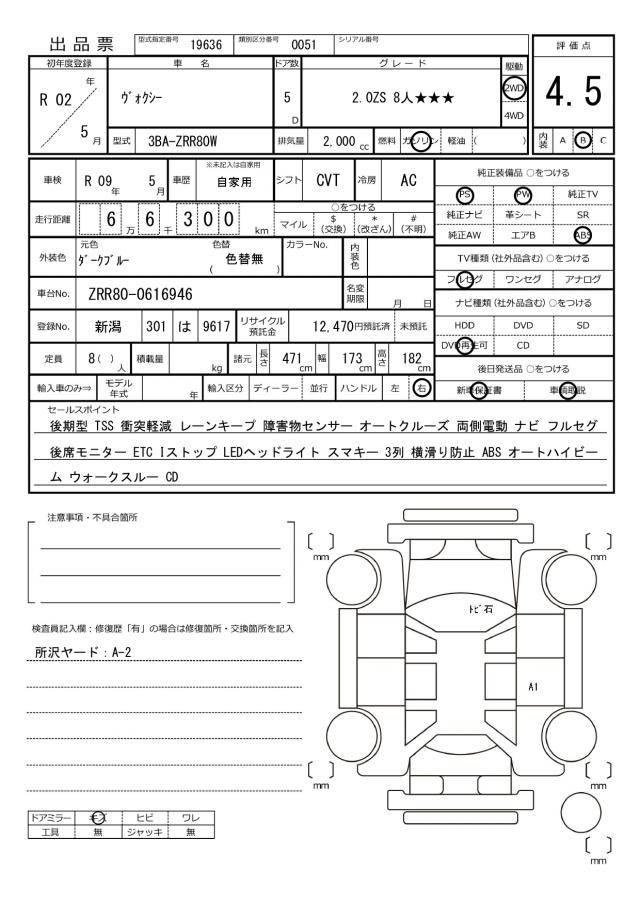 出品票 型式指定番号 19636 類別区分番号 0051 シリアル番号
評価点
初年度登録 車名 ドア数 グレード 駆動
R 02 年 5 月 ヴォクシー 5 D 2.0ZS 8人★★★ 2WD 4WD
4.5
型式 3BA-ZRR80W 排気量 2,000 cc 燃料 ガソリン 軽油 ( )
内装 A B C
車検 R 09 年 5 月 車歴 ※未記入は自家用 自家用 シフト CVT 冷房 AC
走行距離 6 万 6 千 300 km
○をつける
マイル $(交換) *(改ざん) #(不明)
外装色 元色 ダークブルー 色替 ( 色替無 ) カラーNo. 内装色
車台No. ZRR80-0616946 名変期限 月 日
登録No. 新潟 301 は 9617 リサイクル預託金 12,470円預託済 未預託
定員 8( )人 積載量 kg 諸元 長さ 471cm 幅 173cm 高さ 182cm
輸入車のみ⇒ モデル年式 年 輸入区分 ディーラー 並行 ハンドル 左 右
純正装備品 ○をつける
PS PW 純正TV
純正ナビ 革シート SR
純正AW エアB ABS
TV種類(社外品含む) ○をつける
フルセグ ワンセグ アナログ
ナビ種類(社外品含む) ○をつける
HDD DVD SD
DVD再生可 CD
後日発送品 ○をつける
新車保証書 車輌取説
セールスポイント
後期型 TSS 衝突軽減 レーンキープ 障害物センサー オートクルーズ 両側電動 ナビ フルセグ
後席モニター ETC Iストップ LEDヘッドライト スマキー 3列 横滑り防止 ABS オートハイビー
ム ウォークスルー CD
注意事項・不具合箇所
検査員記入欄：修復歴「有」の場合は修復箇所・交換箇所を記入
所沢ヤード：A-2
ドアミラー キズ ヒビ ワレ
工具 無 ジャッキ 無
[ ] mm
[ ] mm
トビ石
A1
[ ] mm
[ ] mm
[ ] mm